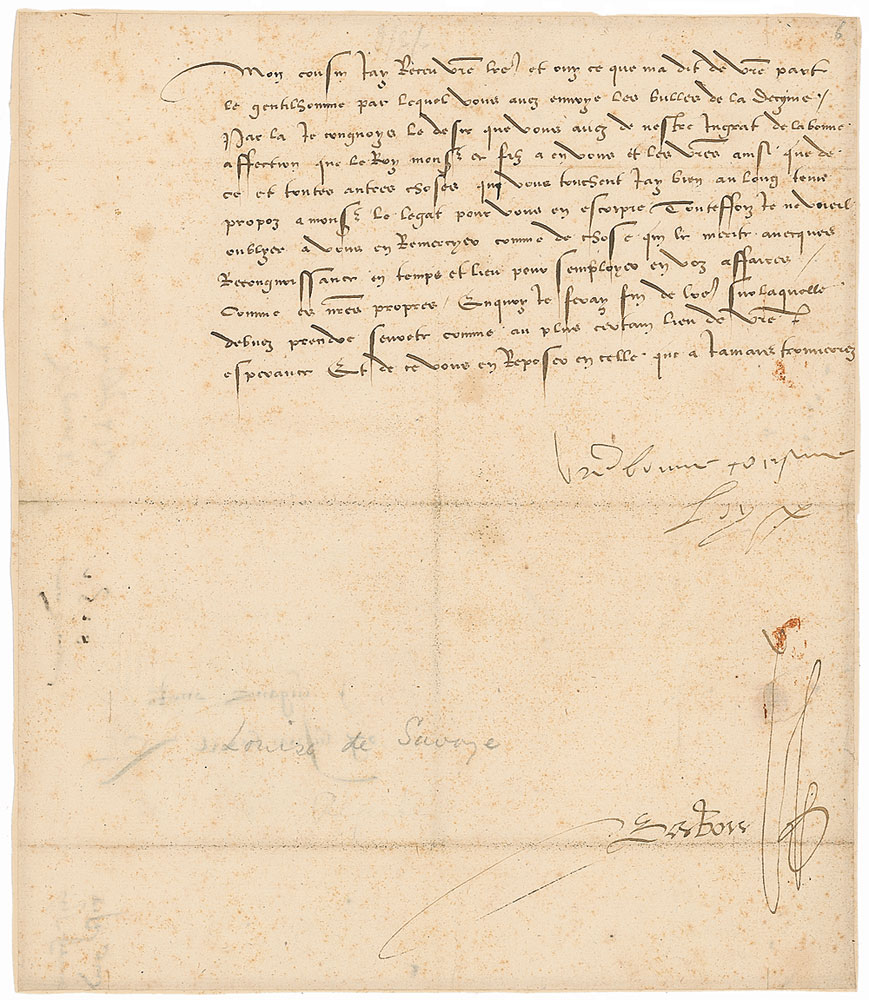 6
Mon cousin Jay Receu vre lre et ouy ce que ma dit de vre part
le gentilhomme par lequel vous avez envoye les bulles de la decyme /
Par la Je congnoys le desir que vous avez de nestre Ingrat de la bonne
affection que le Roy monsr et filz a en vous Et les vres ainsi que de
ce et toutes autres choses qui vous touchent Jay bien au long tenu
propoz a monsr le legat pour vous en escripre Touteffoiz Je ne vueil
oublyer a vous en Remercyer comme de chose qui le merite avecques
Recongnoissance en temps et lieu pour semployer en voz affaires /
Comme es nres propres / Enquoy Je feray fin de lre Sur laquelle
debvez prendre seurete comme au plus certain lieu de vre
esperance Et de ce vous en Reposer en celle que a Jamais trouverez
Vre bonne cousine
Loyse
Louise de Savoye